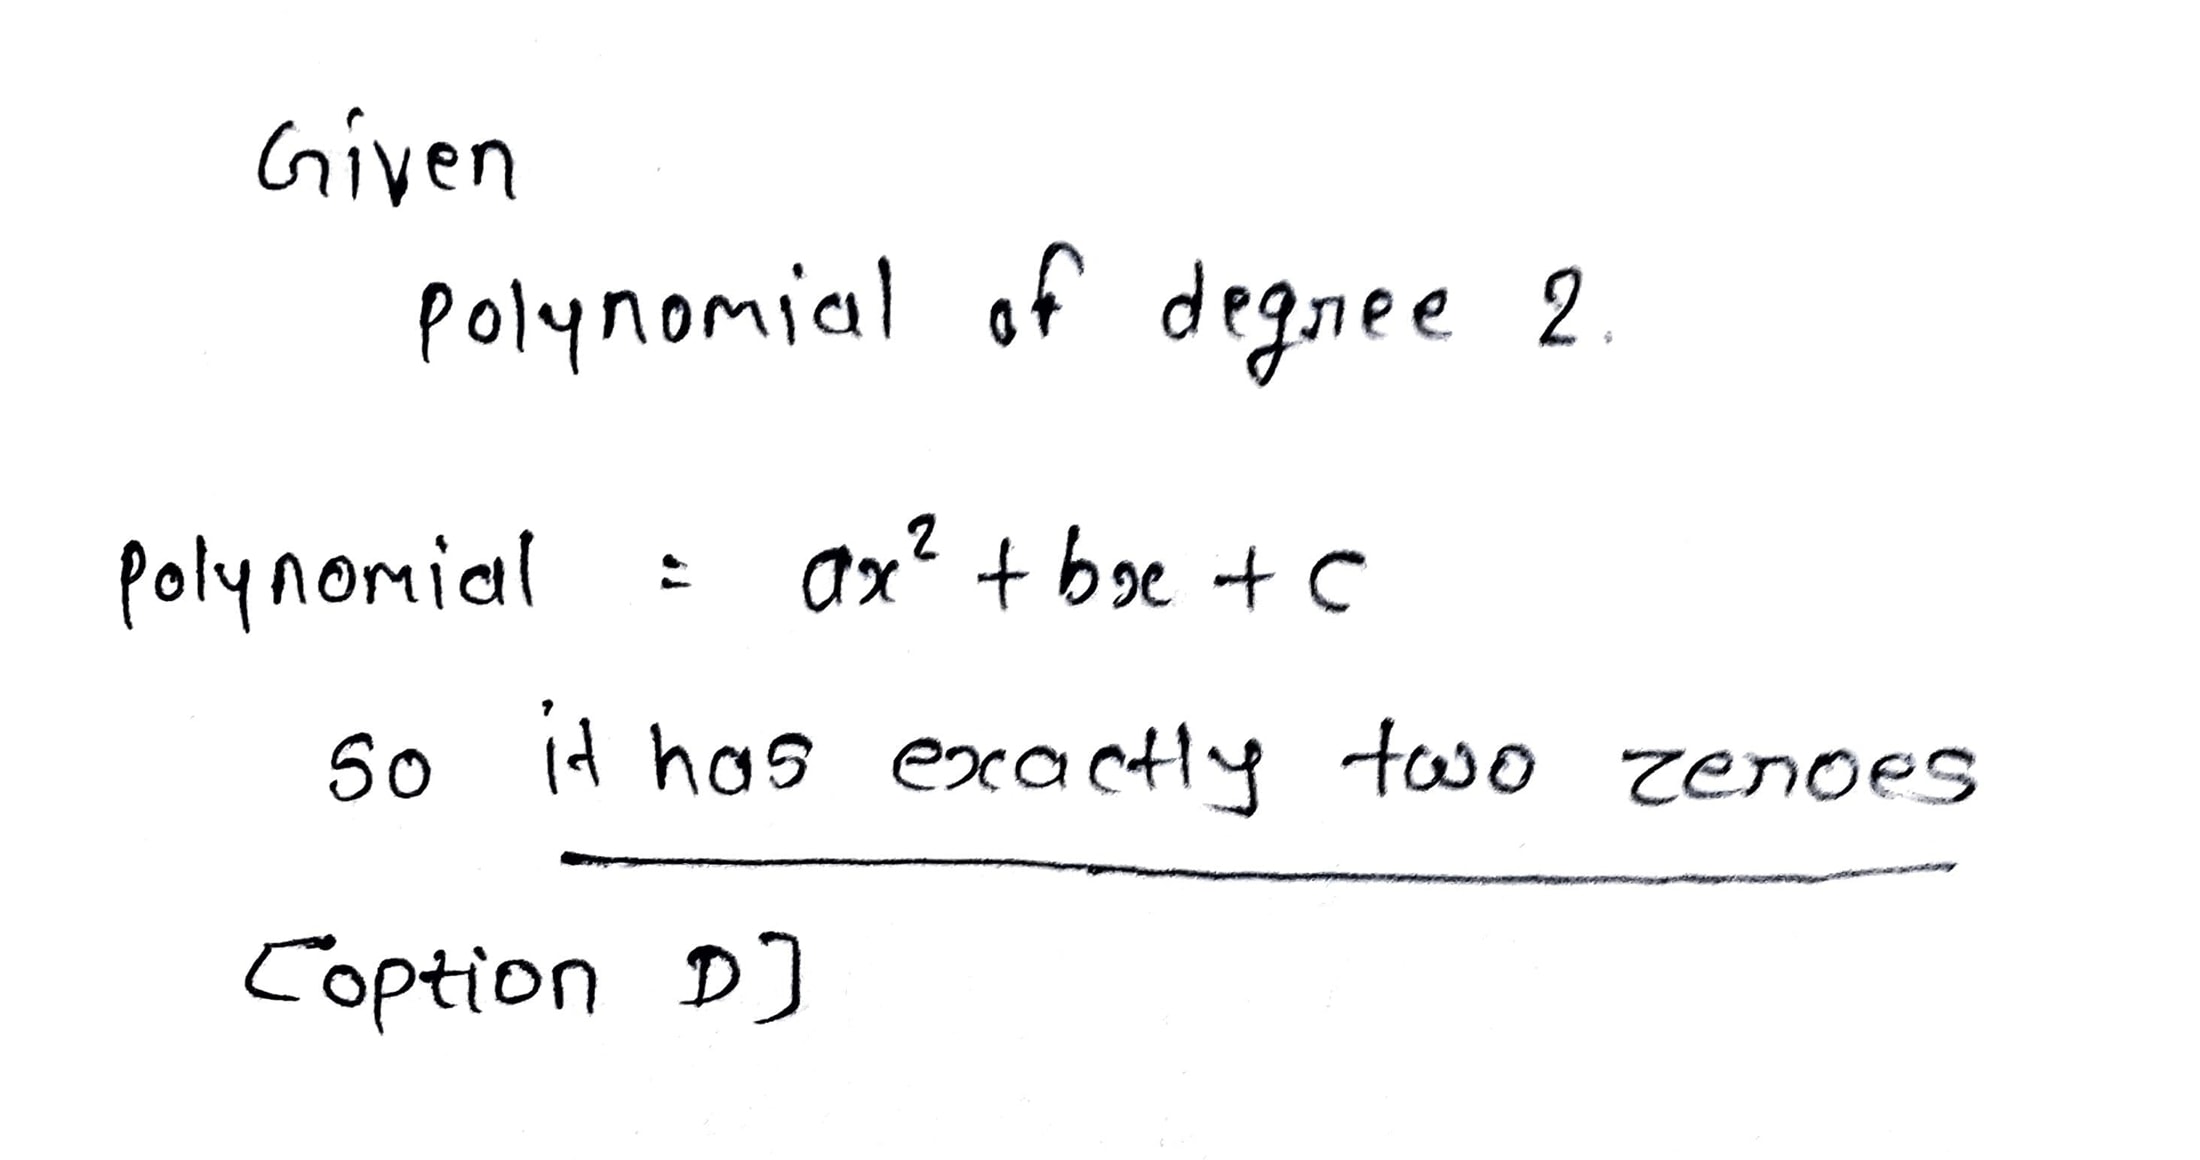 Given
Polynomial of degree 2.
Polynomial = ax² + bx + c
so it has exactly two zeroes
[option D]